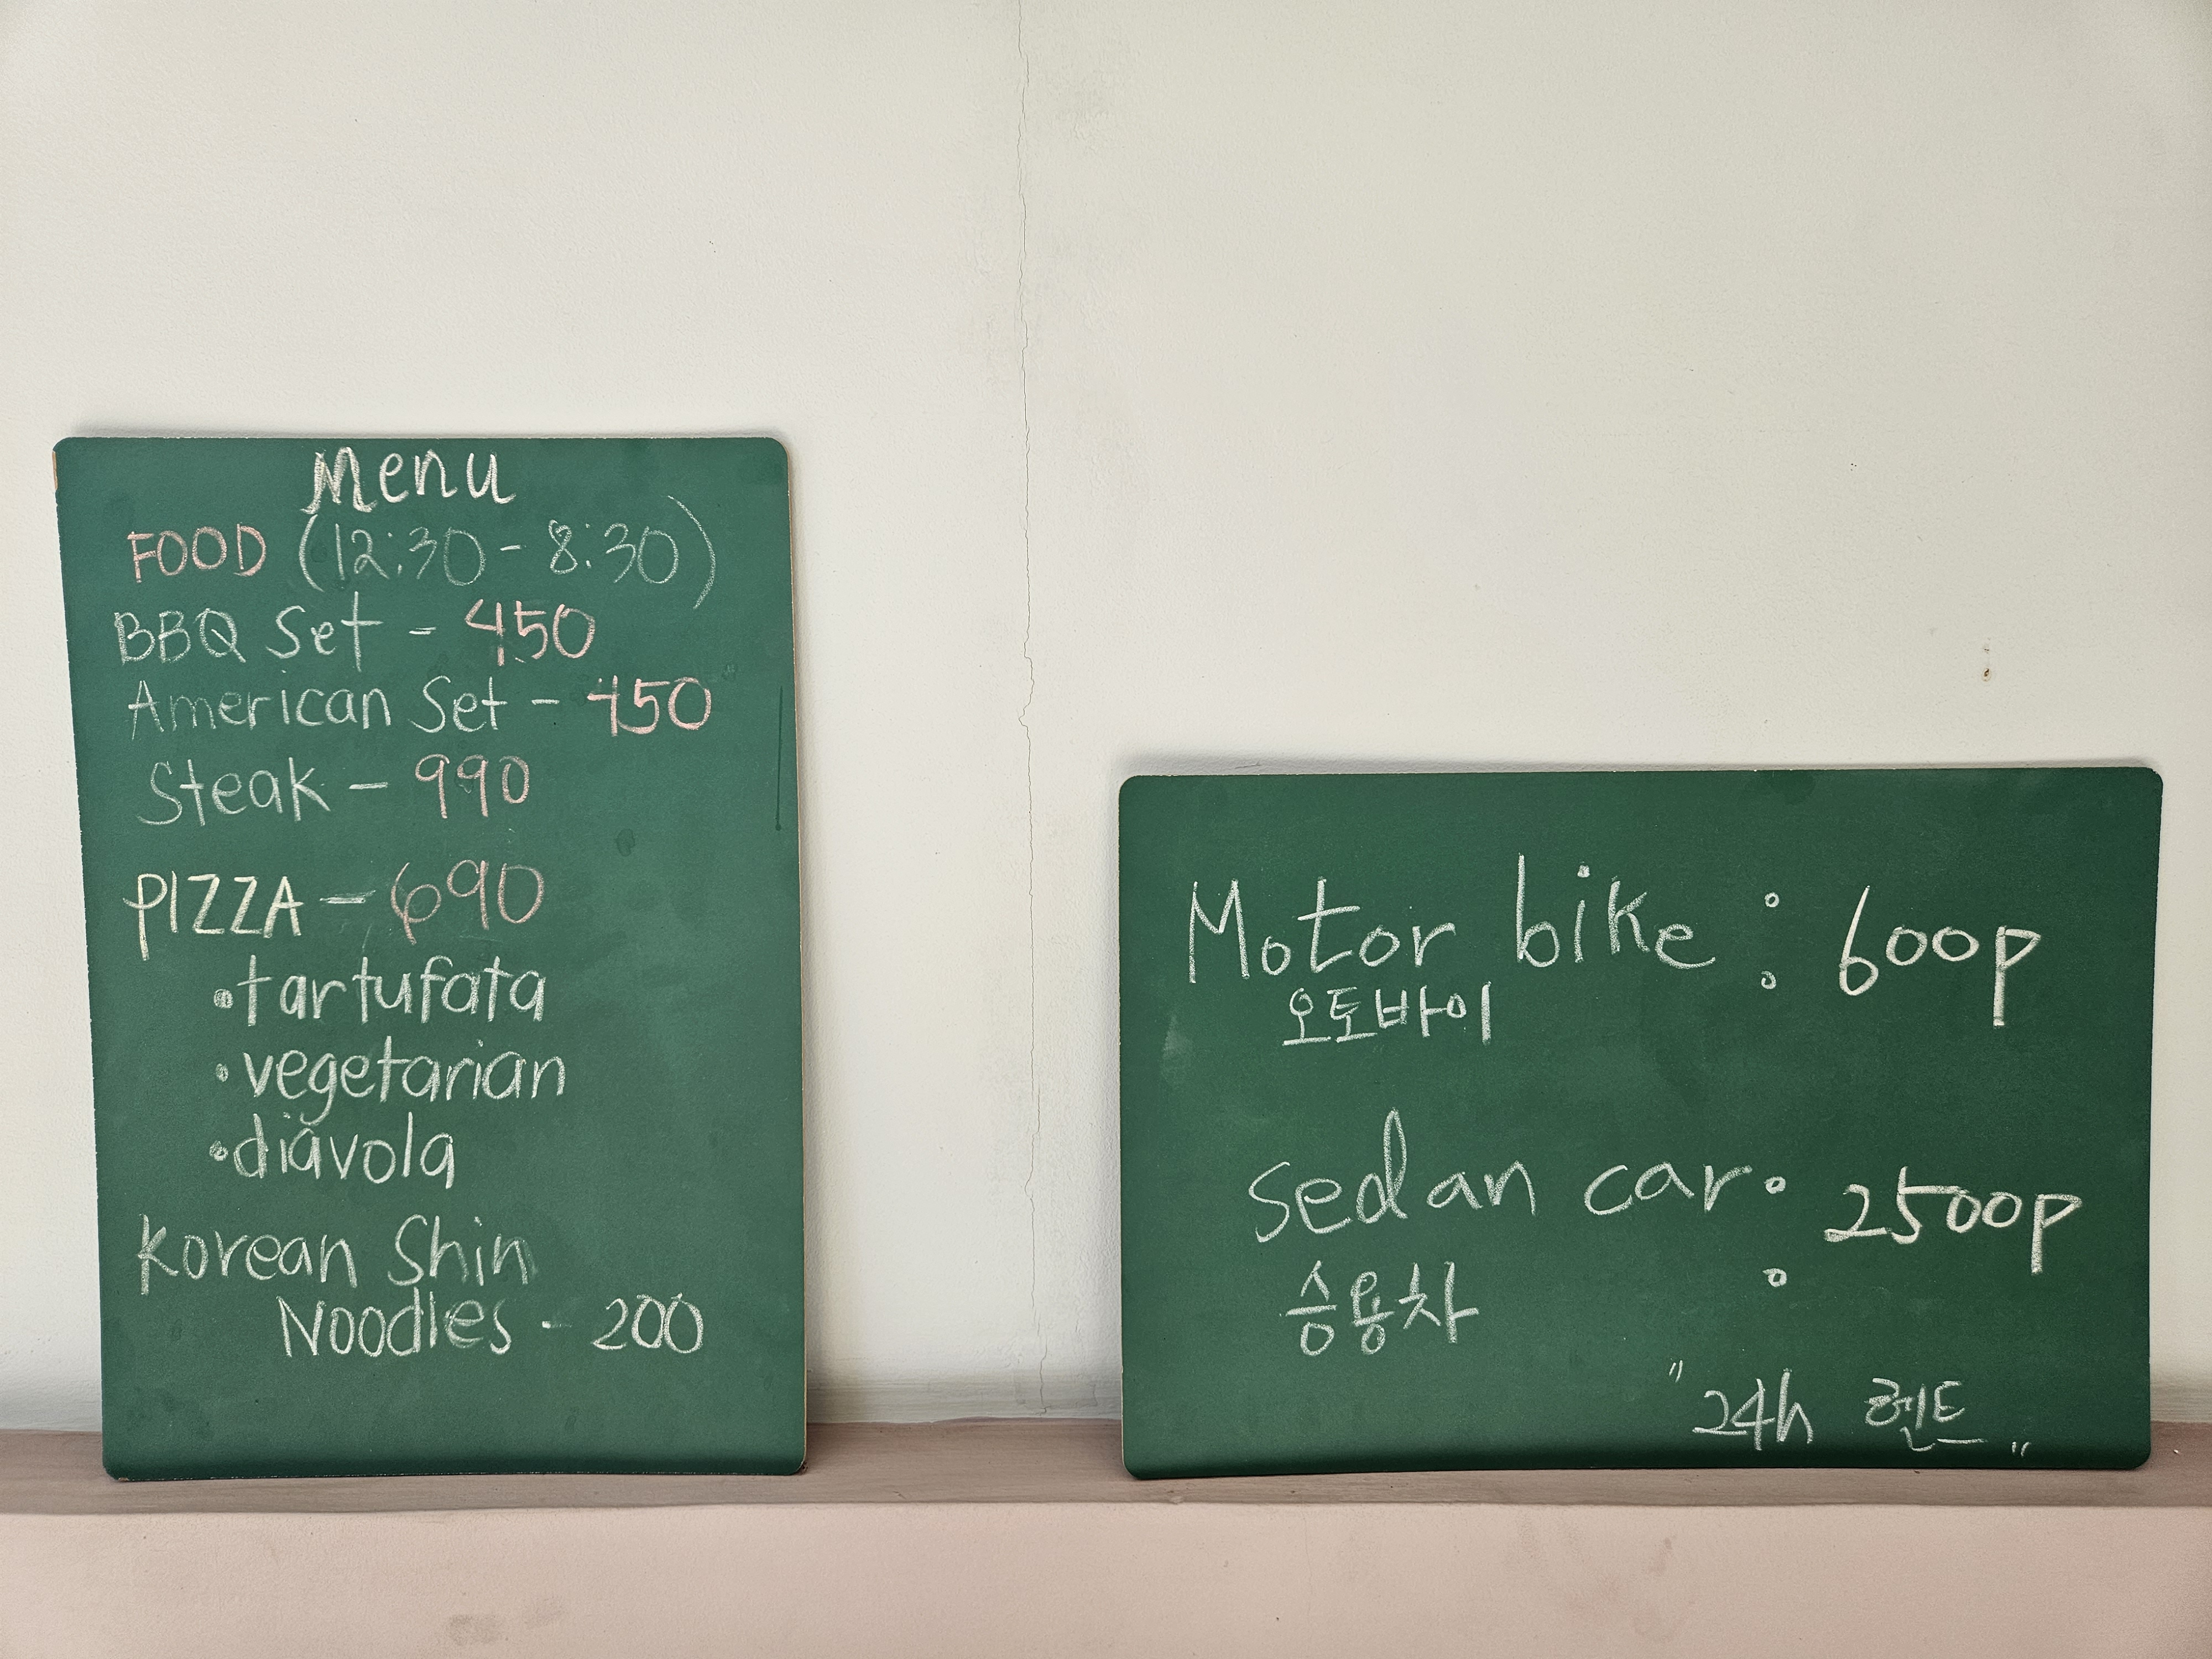 Menu
FOOD (12:30 - 8:30)
BBQ Set - 450
American Set - 450
Steak - 990
PIZZA - 690
• tartufata
• vegetarian
• diavola
Korean Shin
Noodles - 200
Motor bike : 600p
오토바이
sedan car : 2500p
승용차
"24h 렌트"